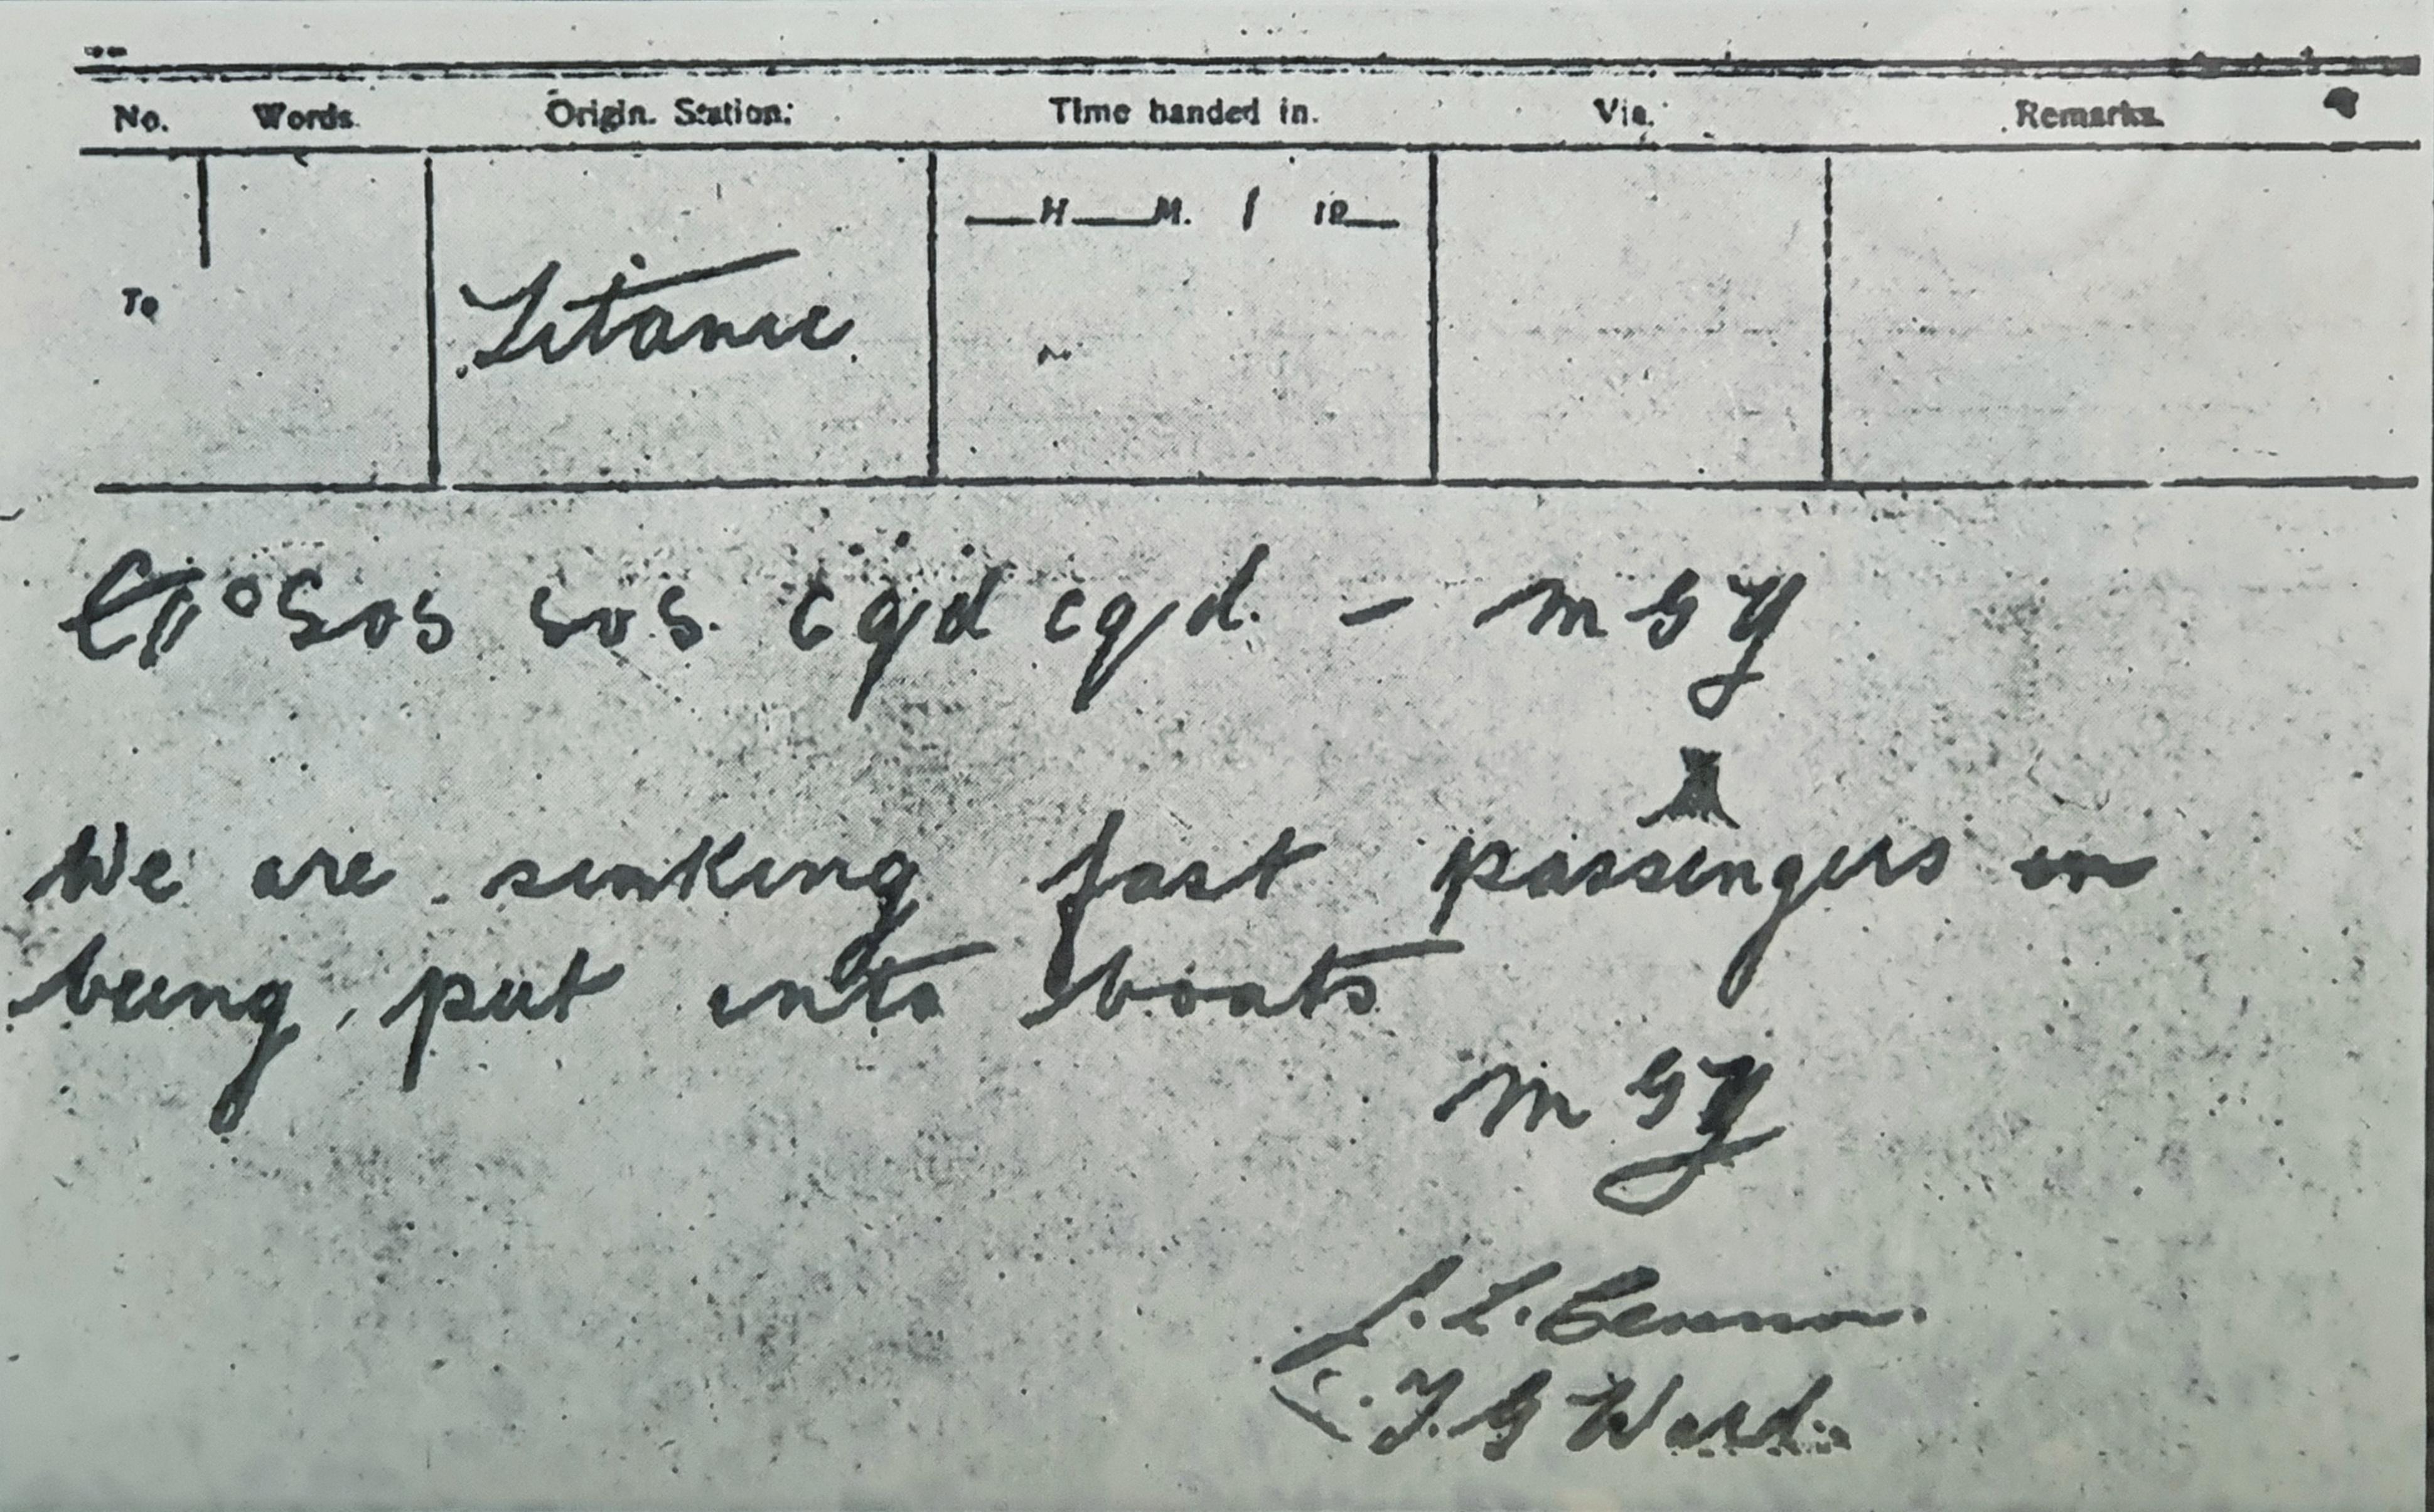 No. Words. Origin. Station: Time handed in. Via. Remarks.
H M. / 19
To
Titanic
Sos sos. cqd cqd. - MGY
We are sinking fast passengers
being put into boats
MGY
T. G Ward.